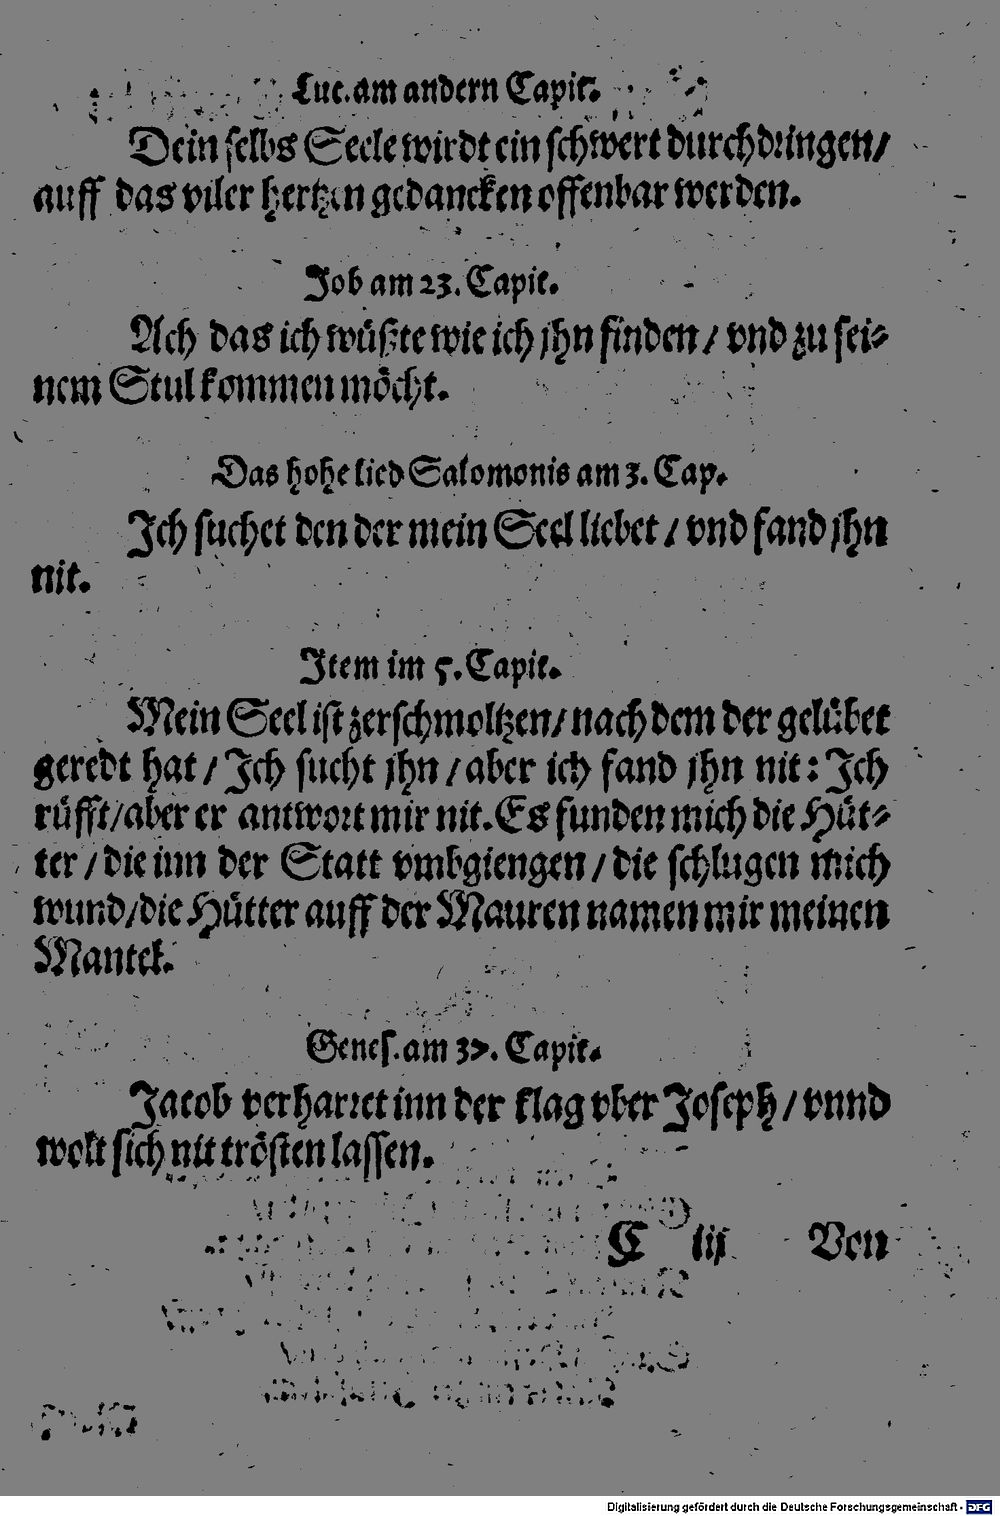 Luc. am andern Capit.
Dein selbs Seele wirdt ein schwert durchdringen/
auff das viler hertzen gedancken offenbar werden.
Job am 23. Capit.
Ach das ich wüßte wie ich jhn finden / vnd zu sei⸗
nem Stul kommen möcht.
Das hohe lied Salomonis am 3. Cap.
Ich suchet den der mein Seel liebet / vnd fand jhn
nit.
Item im 5. Capit.
Mein Seel ist zerschmoltzen/ nach dem der gelübet
geredt hat / Ich sucht jhn / aber ich fand jhn nit: Ich
rüfft/aber er antwort mir nit. Es funden mich die Hüt⸗
ter / die inn der Statt vmbgiengen / die schlugen mich
wund/die Hütter auff der Mauren namen mir meinen
Mantel.
Genes. am 37. Capit.
Jacob verharret inn der klag vber Joseph / vnnd
wolt sich nit trösten lassen.
C iij Von
Digitalisierung gefördert durch die Deutsche Forschungsgemeinschaft - DFG